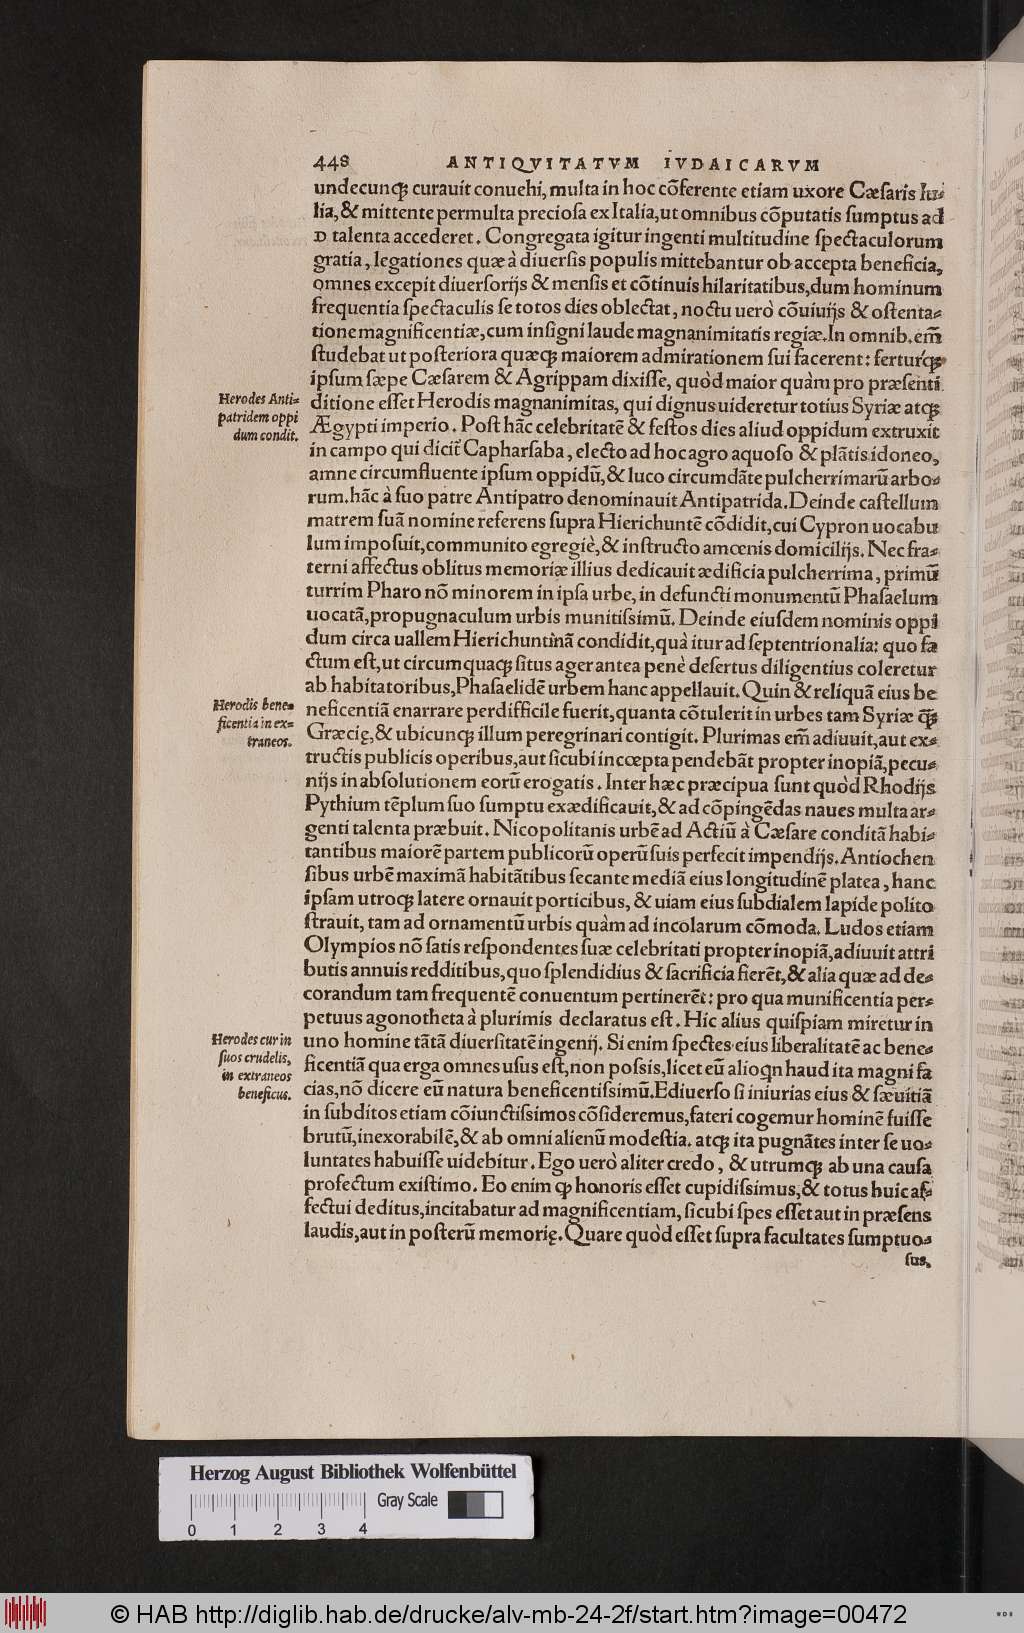 448 ANTIQVITATVM IVDAICARVM
undecunq; curauit conuehi, multa in hoc cõferente etiam uxore Cæſaris Iu-
lia, & mittente permulta precioſa ex Italia, ut omnibus cõputatis ſumptus ad
D talenta accederet. Congregata igitur ingenti multitudine ſpectaculorum
gratia, legationes quæ à diuerſis populis mittebantur ob accepta beneficia,
omnes excepit diuerſorijs & menſis et cõtinuis hilaritatibus, dum hominum
frequentia ſpectaculis ſe totos dies oblectat, noctu uerò cõuiuijs & oſtenta-
tione magnificentiæ, cum inſigni laude magnanimitatis regiæ. In omnib. em̃
ſtudebat ut poſteriora quæq; maiorem admirationem ſui facerent: ferturq́;
ipſum ſæpe Cæſarem & Agrippam dixiſſe, quòd maior quàm pro præſenti
Herodes Anti-
patridem oppi
dum condit.
ditione eſſet Herodis magnanimitas, qui dignus uideretur totius Syriæ atq;
Ægypti imperio. Poſt hãc celebritatẽ & feſtos dies aliud oppidum extruxit
in campo qui dicit̃ Capharſaba, electo ad hoc agro aquoſo & plãtis idoneo,
amne circumfluente ipſum oppidũ, & luco circumdãte pulcherrimarũ arbo-
rum. hãc à ſuo patre Antipatro denominauit Antipatrida. Deinde caſtellum
matrem ſuã nomine referens ſupra Hierichuntẽ cõdidit, cui Cypron uocabu
lum impoſuit, communito egregiè, & inſtructo amœnis domicilijs. Nec fra-
terni affectus oblitus memoriæ illius dedicauit ædificia pulcherrima, primũ
turrim Pharo nõ minorem in ipſa urbe, in defuncti monumentũ Phaſaelum
uocatã, propugnaculum urbis munitiſsimũ. Deinde eiuſdem nominis oppi
dum circa uallem Hierichuntinã condidit, quà itur ad ſeptentrionalia: quo fa
ctum eſt, ut circumquaq; ſitus ager antea penè deſertus diligentius coleretur
ab habitatoribus, Phaſaelidẽ urbem hanc appellauit. Quin & reliquã eius be
Herodis bene-
ficentia in ex-
traneos.
neficentiã enarrare perdifficile fuerit, quanta cõtulerit in urbes tam Syriæ q̃;
Græcię, & ubicunq; illum peregrinari contigit. Plurimas em̃ adiuuit, aut ex-
tructis publicis operibus, aut ſicubi incœpta pendebãt propter inopiã, pecu-
nijs in abſolutionem eorũ erogatis. Inter hæc præcipua ſunt quòd Rhodijs
Pythium tẽplum ſuo ſumptu exædificauit, & ad cõpingẽdas naues multa ar-
genti talenta præbuit. Nicopolitanis urbẽ ad Actiũ à Cæſare conditã habi-
tantibus maiorẽ partem publicorũ operũ ſuis perfecit impendijs. Antiochen
ſibus urbẽ maximã habitãtibus ſecante mediã eius longitudinẽ platea, hanc
ipſam utroq; latere ornauit porticibus, & uiam eius ſubdialem lapide polito
ſtrauit, tam ad ornamentũ urbis quàm ad incolarum cõmoda. Ludos etiam
Olympios nõ ſatis reſpondentes ſuæ celebritati propter inopiã, adiuuit attri
butis annuis redditibus, quo ſplendidius & ſacrificia fierẽt, & alia quæ ad de-
corandum tam frequentẽ conuentum pertinerẽt: pro qua munificentia per-
petuus agonotheta à plurimis declaratus eſt. Hic alius quiſpiam miretur in
Herodes cur in
ſuos crudelis,
in extraneos
beneficus.
uno homine tãtã diuerſitatẽ ingenij. Si enim ſpectes eius liberalitatẽ ac bene-
ficentiã qua erga omnes uſus eſt, non poſsis, licet eũ alioqn haud ita magni fa
cias, nõ dicere eũ natura beneficentiſsimũ. Ediuerſo ſi iniurias eius & ſæuitiã
in ſubditos etiam cõiunctiſsimos cõſideremus, fateri cogemur hominẽ fuiſſe
brutũ, inexorabilẽ, & ab omni alienũ modeſtia. atq; ita pugnãtes inter ſe uo-
luntates habuiſſe uidebitur. Ego uerò aliter credo, & utrumq; ab una cauſa
profectum exiſtimo. Eo enim ꝙ honoris eſſet cupidiſsimus, & totus huic af-
fectui deditus, incitabatur ad magnificentiam, ſicubi ſpes eſſet aut in præſens
laudis, aut in poſterũ memorię. Quare quòd eſſet ſupra facultates ſumptuo-
ſus,
Herzog August Bibliothek Wolfenbüttel
Gray Scale
0 1 2 3 4
© HAB http://diglib.hab.de/drucke/alv-mb-24-2f/start.htm?image=00472